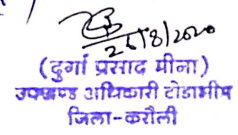 25/8/2020
(दुर्गा प्रसाद मीना)
उपखण्ड अधिकारी टोडाभीम
जिला-करौली